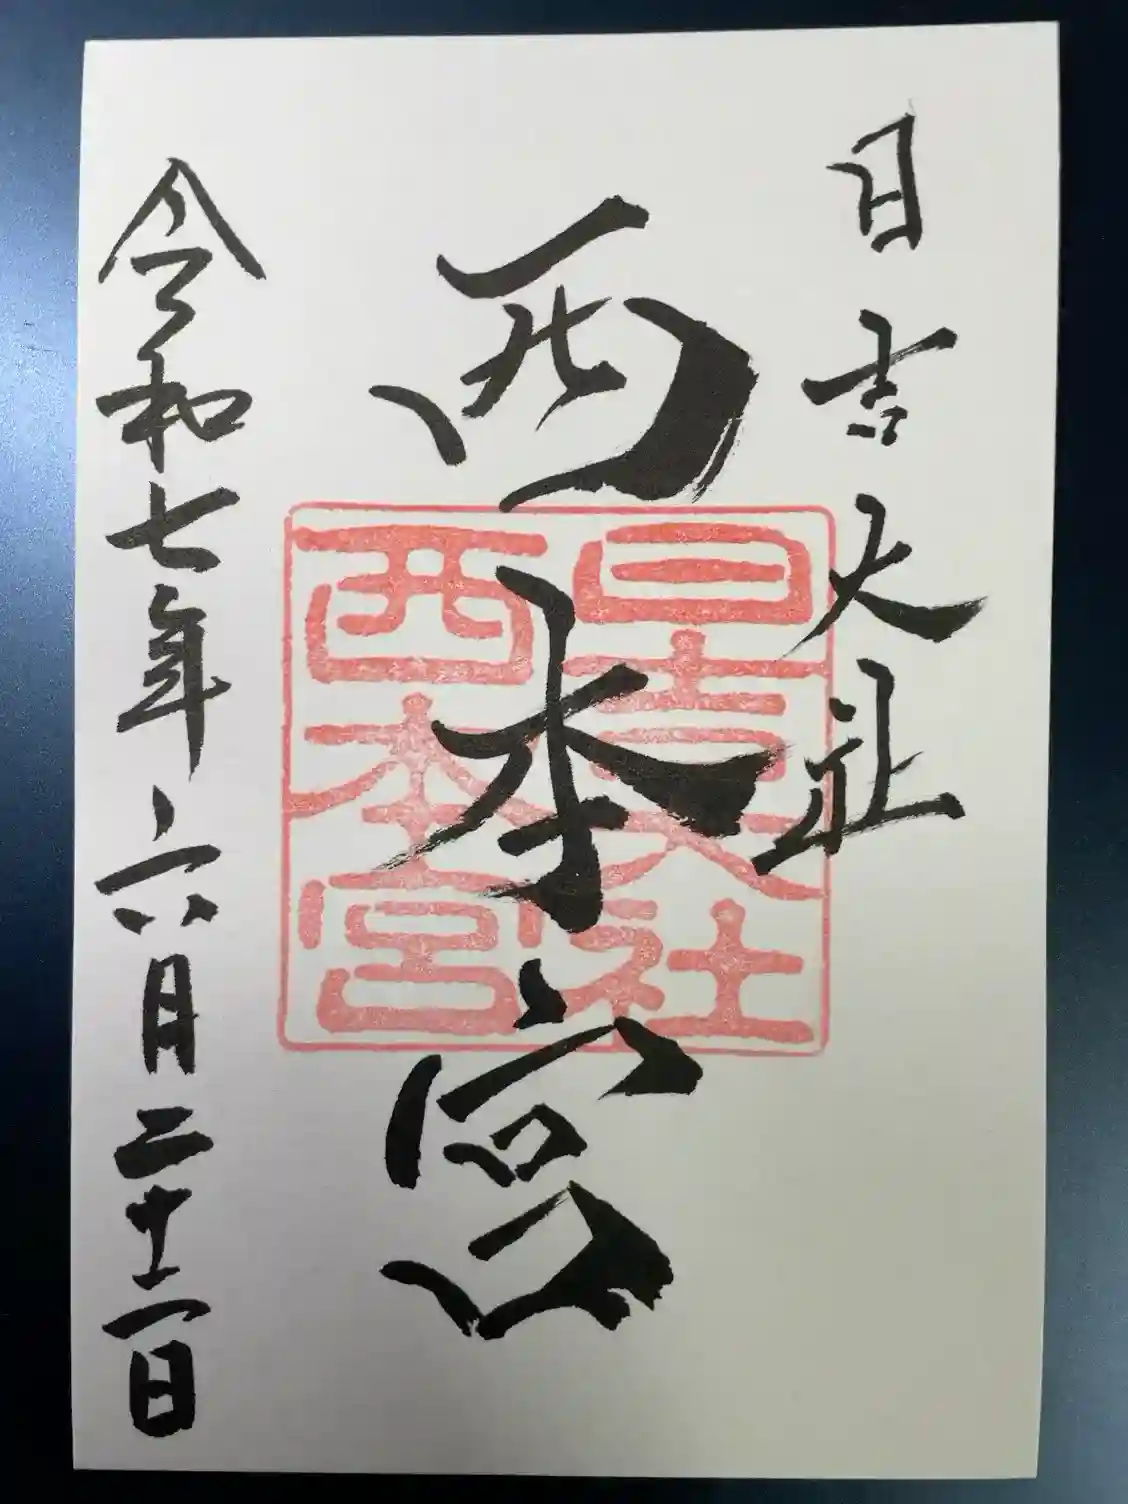 日吉大社
西本宮
日吉大社
西本宮
令和七年六月二十二日